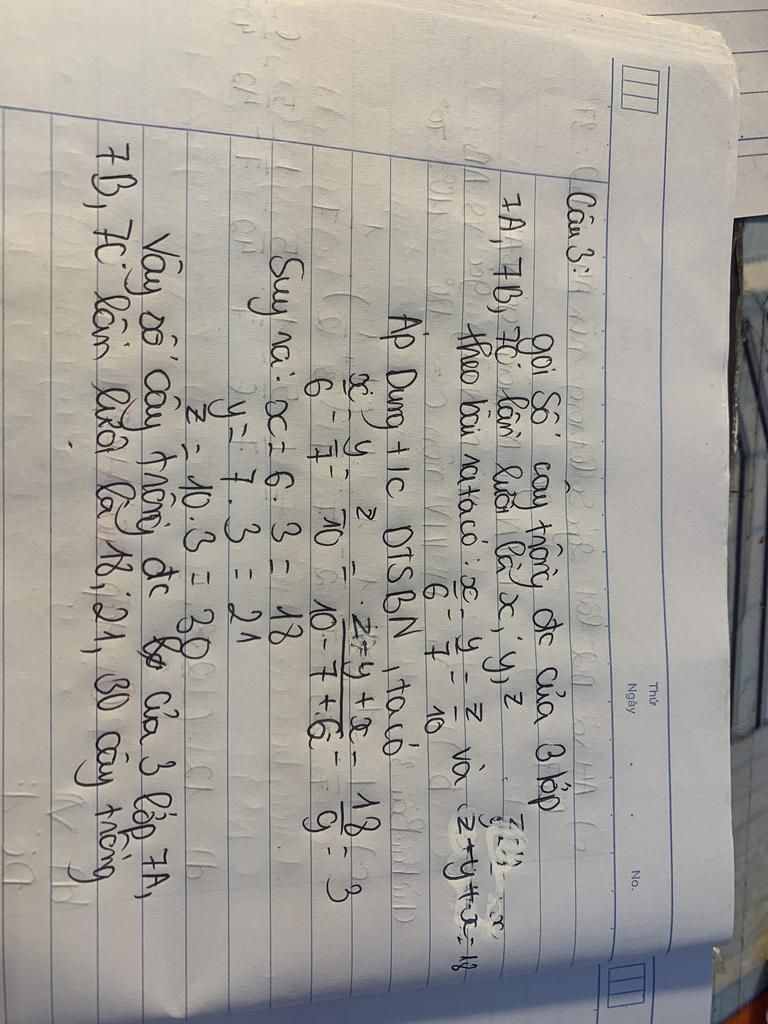 Thứ
Ngày
No.
Câu 3:
gọi số cây trồng đc của 3 lớp
7A, 7B, 7C lần lượt là x, y, z
theo bài ra ta có: x/6 = y/7 = z/10 và z+y+x=18
Áp Dụng t/c DTSBN, ta có
x/6 = y/7 = z/10 = z+y+x/10-7+6 = 18/9 = 3
Suy ra: x = 6.3 = 18
y = 7.3 = 21
z = 10.3 = 30
Vậy số cây trồng đc của 3 lớp 7A,
7B, 7C lần lượt là 18, 21, 30 cây trồng